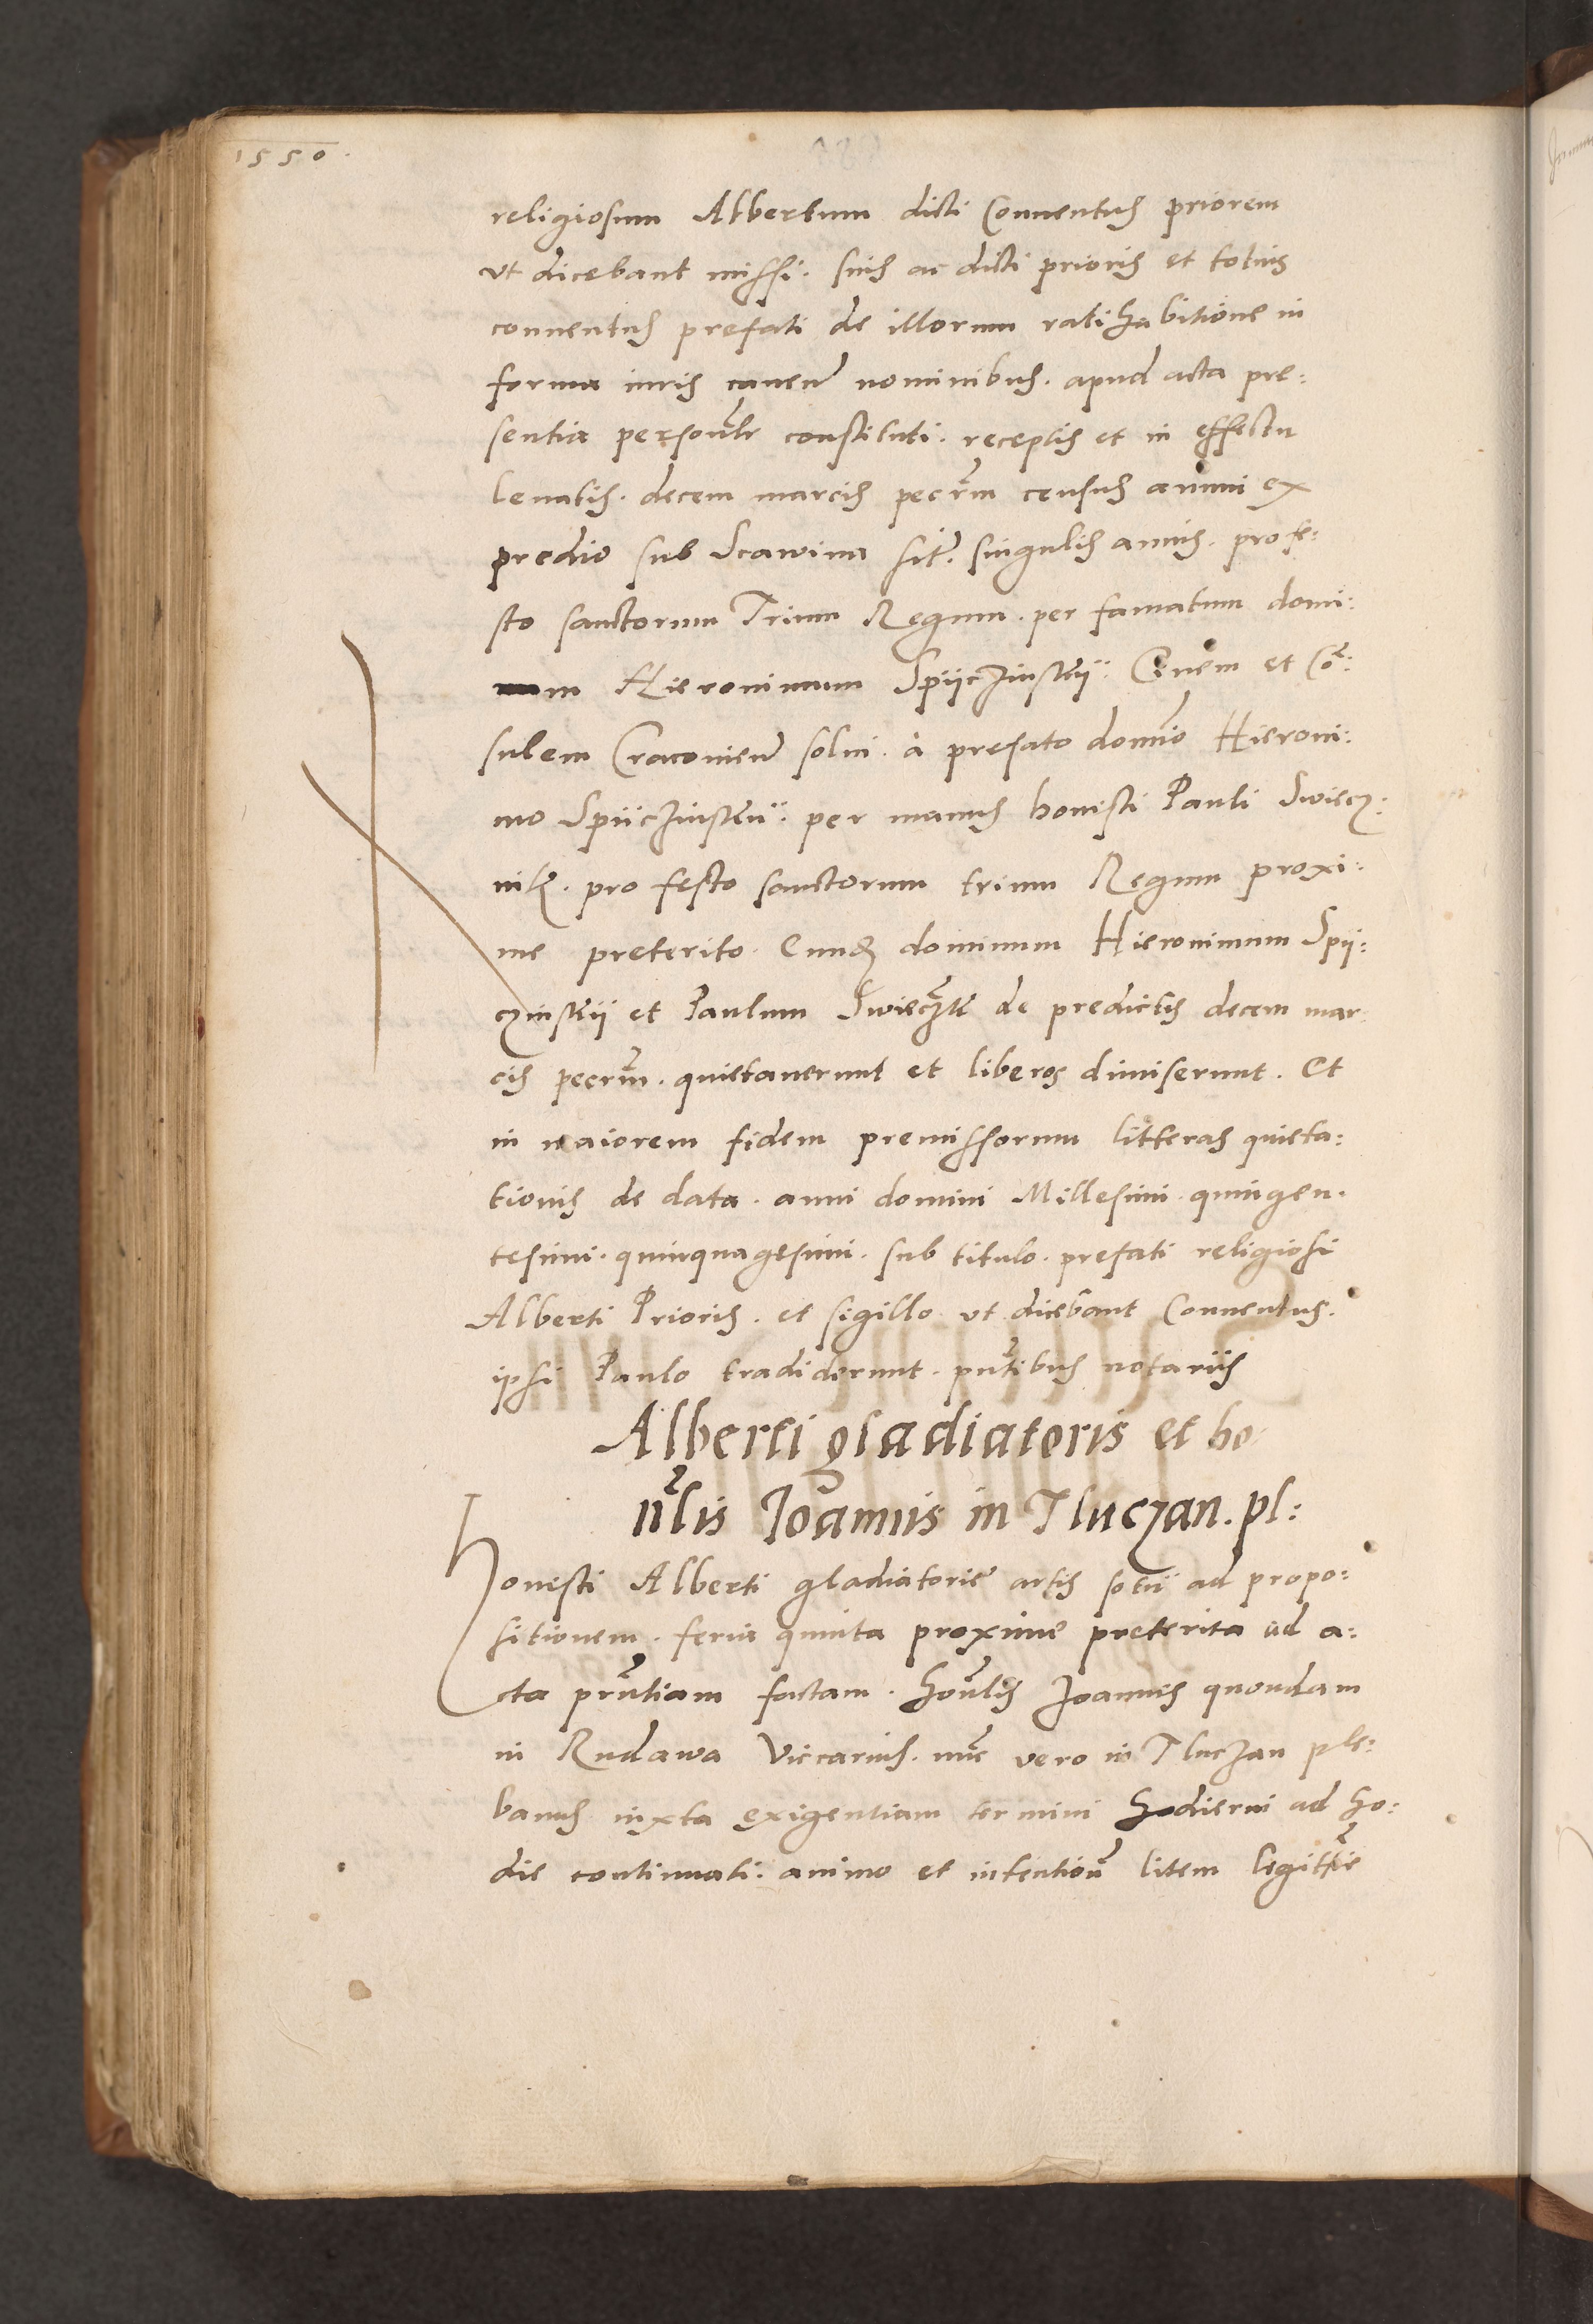 1550.
religiosum Albertum dicti Conuentus priorem
vt dicebant missi. suis ac dicti prioris et totius
conuentus prefati de illorum ratihabitione in
forma iuris cauen̄ nominibus. apud acta pre:
sentia personl̄r constituti. receptis et in effectu
leuatis. decem marcis pecr̄m census annui ex
predio sub Scawina sit̄. singulis annis. pro fe:
sto sanctorum Trium Regum. per famatum domi:
m Hieronimum SpiiczinsKii. Ciuem et Cō:
sulem Cracouien̄ solui. à prefato domīo Hieroni:
mo SpiiczinsKii. per manus honesti Pauli Swiecz:
nik. pro festo sanctorum trium Regum proxi:
me preterito. Eundem dominum Hieronimum Spii:
czinsKii et Paulum de predictis decem mar
cis pecr̄m. quietauerunt et liberos dimiserunt. Et
in maiorem fidem premissorum litteras quieta:
tionis de data. anni domini Millesimi. quingen.
tesimi. quinquagesimi. sub titulo. prefati religiosi
Alberti Prioris. et sigillo vt dicebant Conuentus.
ipsi Paulo tradiderunt. pn̄tibus notariis
Alberti gladiatoris et ho
n̄lis Ioannis in Tluczan. pl:
Honesti Alberti gladiatorie artis sotii ad propo:
sitionem. feria quinta proxime preterita ad a:
cta prn̄tiam factam. hon̄lis Joannis quondam
in Rudawa Viccarius. nūc vero in Tluczan ple:
banus iuxta exigentiam termini hodierni ad ho:
die continuati. animo et intention̄ litem legitt̄ie